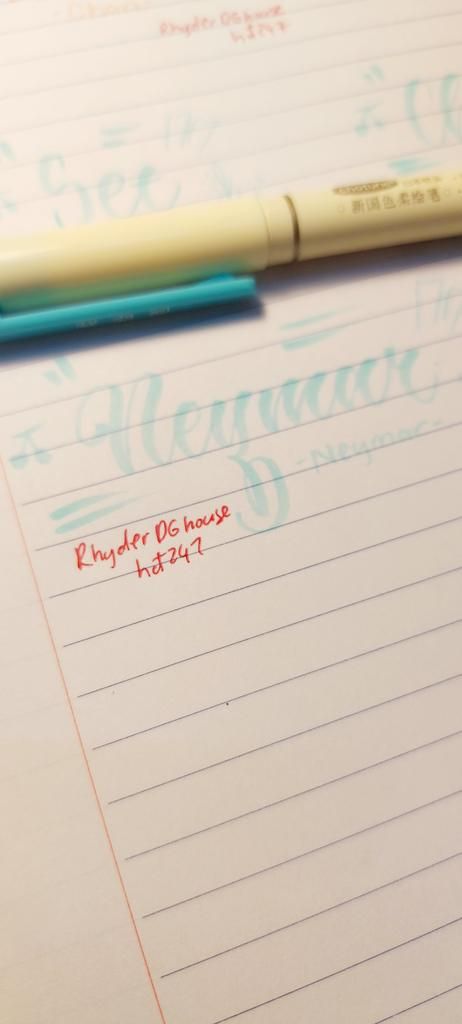 Rhyder DG house
hd247
See
新国色柔绘笔
Neymar
-Neymar-
Rhyder DG house
hd247